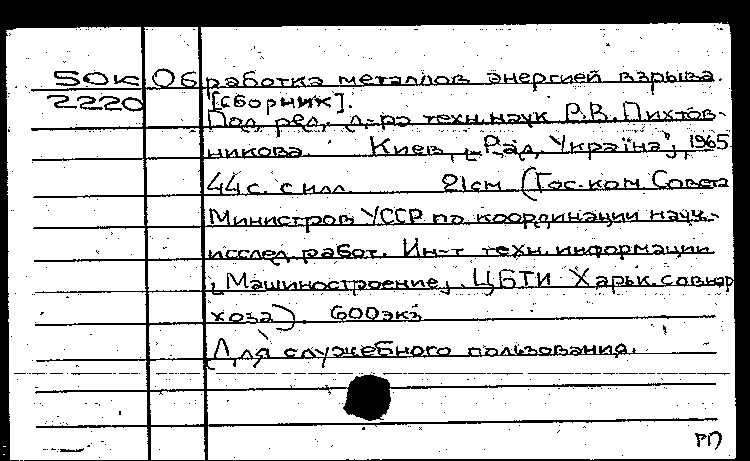 50K Обработка металлов энергией взрыва.
2220 [сборник].
Под ред. д-ра техн.наук Р.В. Пихтов-
никова. Киев, „Рад. Україна", 1965
44с. с илл. 21см (Гос.ком. Совета
Министров УССР по координации науч.-
исслед. работ. Ин-т техн. информации
„Машиностроение". ЦБТИ Харьк.совнар
хоза). 600экз
Для служебного пользования.
РП